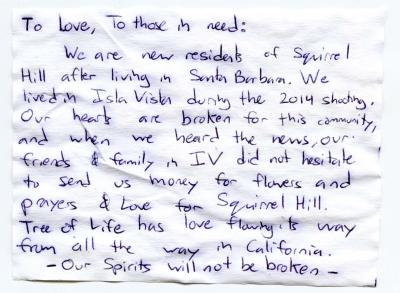 To Love, To those in need:
We are new residents of Squirrel
Hill after living in Santa Barbara. We
lived in Isla Vista during the 2014 shooting.
Our hearts are broken for this community,
and when we heard the news, our
friends & family in IV did not hesitate
to send us money for flowers and
prayers & Love for Squirrel Hill.
Tree of Life has love flowing its way
from all the way in California.
- Our Spirits will not be broken -